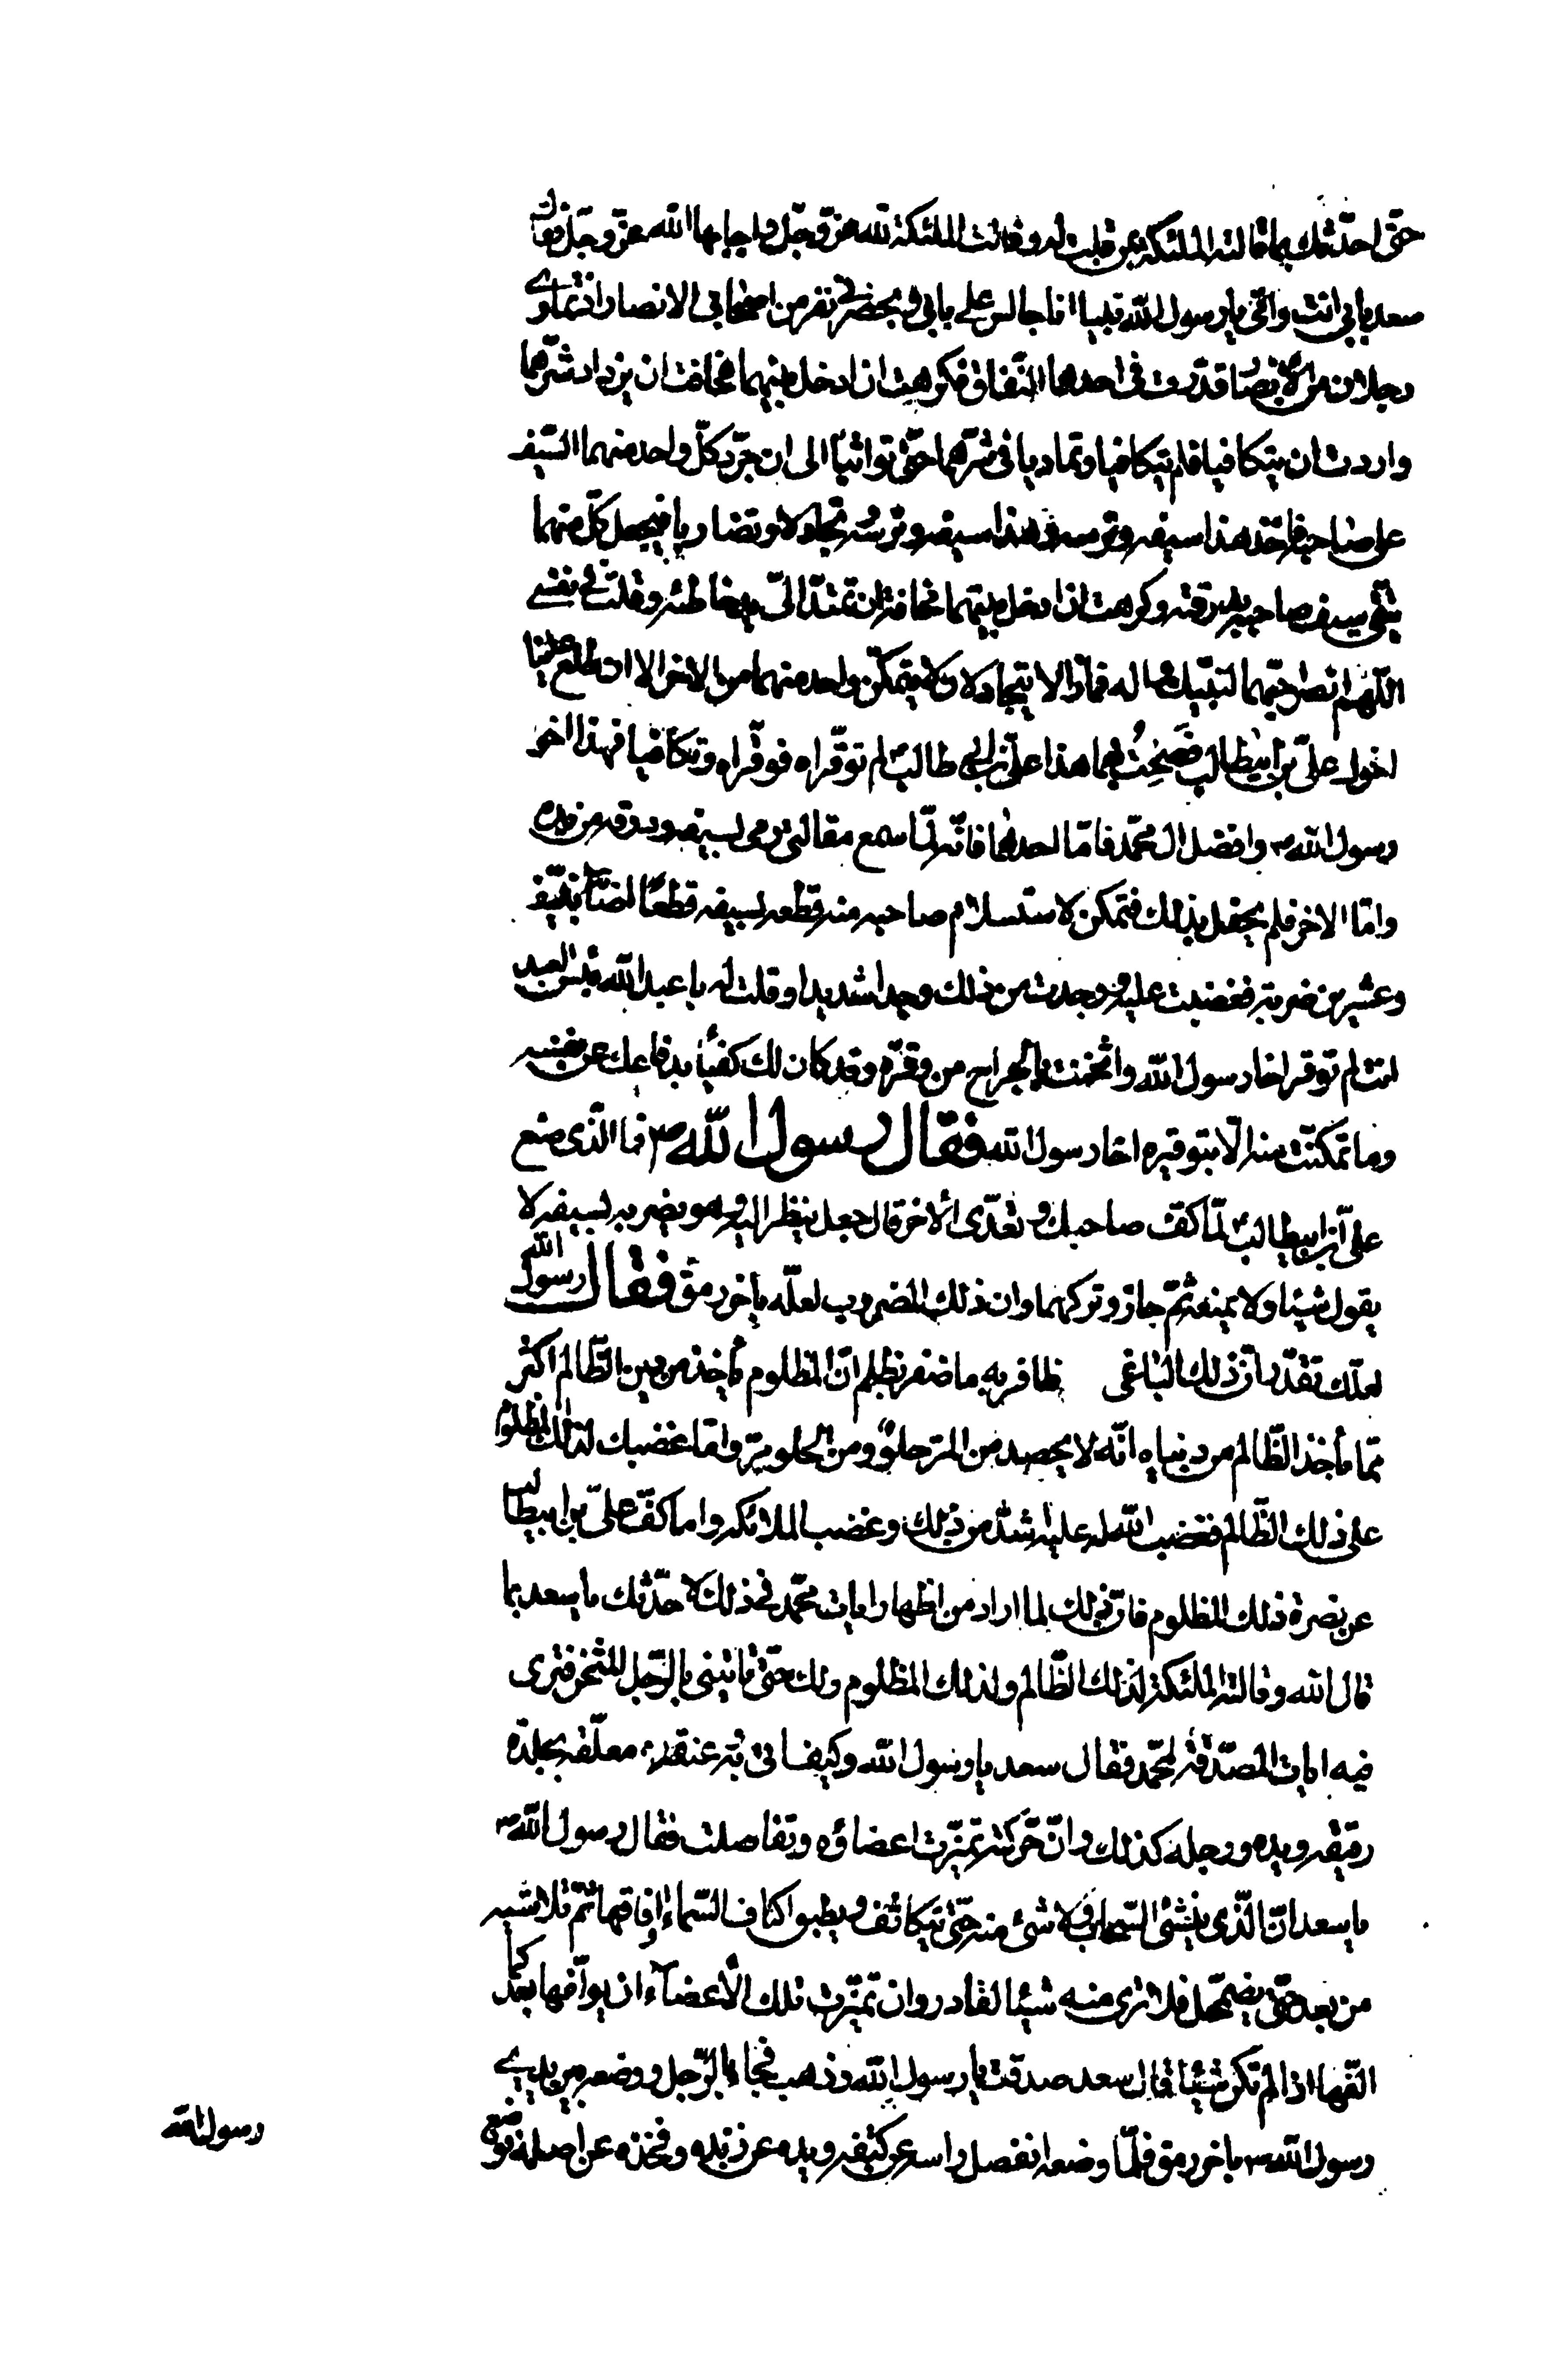 حتى احدثك بما قالته الملئكة عمن قلبت له وقالت الملئكة لله عز وجل واجابها الله عز وجل فقال
سعد بابي انت وامي يا رسول الله بينا انا جالس على بابي و بحضرتي نفر من اصحابي الانصار اذ تمادى
رجلان من الانصار قد دبت في احدهما النفاق فكرهت ان ادخل بينهما مخافة ان يزداد شرهما
واردت ان يتكافيا فلم يتكافيا وتماديا في شرهما حتى تواثبا الى ان جرد كل واحد منهما السيف
على صاحبه فاخذ هذا سيفه وترسه وهذا سيفه وترسه تجاولا وتضاربا فيجعل كل منهما
يتقي سيف صاحبه بدرقته وكرهت ان ادخل بينهما مخافة ان تمتد الي يد خاطئة وقلت في نفسي
اللهم انصر احبهما لنبيك واله فما زالا يتجاولا ولا يتمكن واحد منهما من الاخر الا ان طلع علينا
اخوك علي بن ابيطالب فصحت بهما هذا علي بن ابي طالب لم توقراه فوقراه وتكافيا فهذا اخو
رسول الله ص وافضل ال محمد فاما احدهما فانه لما سمع مقالتي رمى بسيفه ودرقه من يده
واما الاخر فلم يحفل بذلك فتمكن لاستسلام صاحبه منه قطعه بسيفه قطعا اصابه بنيف
وعشرين ضربة فغضبت عليه ووجدت من ذلك وجدا شديدا وقلت له يا عبد الله بئس العبد
انت لم توقر اخا رسول الله واثخنت بالجراح من وقره وقد كان لك كفيا بدفاعك عن نفسه
وما تمكنت منه الا بتوقيره اخا رسول الله فقال رسول الله ص فما الذي صنع
علي بن ابيطالب لما كف صاحبك و تعدى الاخر قال جعل ينظر اليه وهو يضربه بسيفه لا
يقول شيئا ولا يمنعه ثم جاز وتركهما وان ذلك المضروب لعله باخر رمق فقال رسول الله
لعلك تقدر ان ذلك الباغي ظافر به ما ظفر بظلم ان المظلوم يأخذ من دين الظالم اكثر
مما يأخذ الظالم من دنياه انه لا يحصد من المر حلو ومن الحلو مر واما غضبك لذلك المظلوم
على ذلك الظالم فغضب الله له عليه اشد من ذلك وغضب الملائكه واما كف علي بن ابيطالب
عن نصرة ذلك المظلوم فان ذلك لما اراد من اظهار ايات محمد في ذلك لا حدثك يا سعد بما
قال الله وقالته الملئكة لذلك الظالم ولذلك المظلوم ولك حتى تاتيني بالرجل المثخن فترى
فيه ايات المصدقة لمحمد فقال سعد يا رسول الله وكيف اتي به عنقه معلقه بجلدة
رقيقه ويده ورجله كذلك وان حركته تميزت اعضاؤه وتفاصلت فقال رسول الله ص
يا سعد ان الذي ينشئ السحاب ولا شئ منه حتى تيكاثف ويطبق اكناف السماء وافاقها ثم تلاشيه
من بعد حتى يضمحل فلا ترى منه شيئا لقادر وان تميزت تلك الاعضاء ان يؤلفها بعد كما
الفها اذا لم تكن شيئا قال سعد صدقت يا رسول الله وذهب فجاء بالرجل ووضعه بين يدي
رسول الله ص باخر رمق فلما وضعه انفصل راسه عن كتفه ويده عن زنده وفخذه عن اصله فوضع
رسول الله